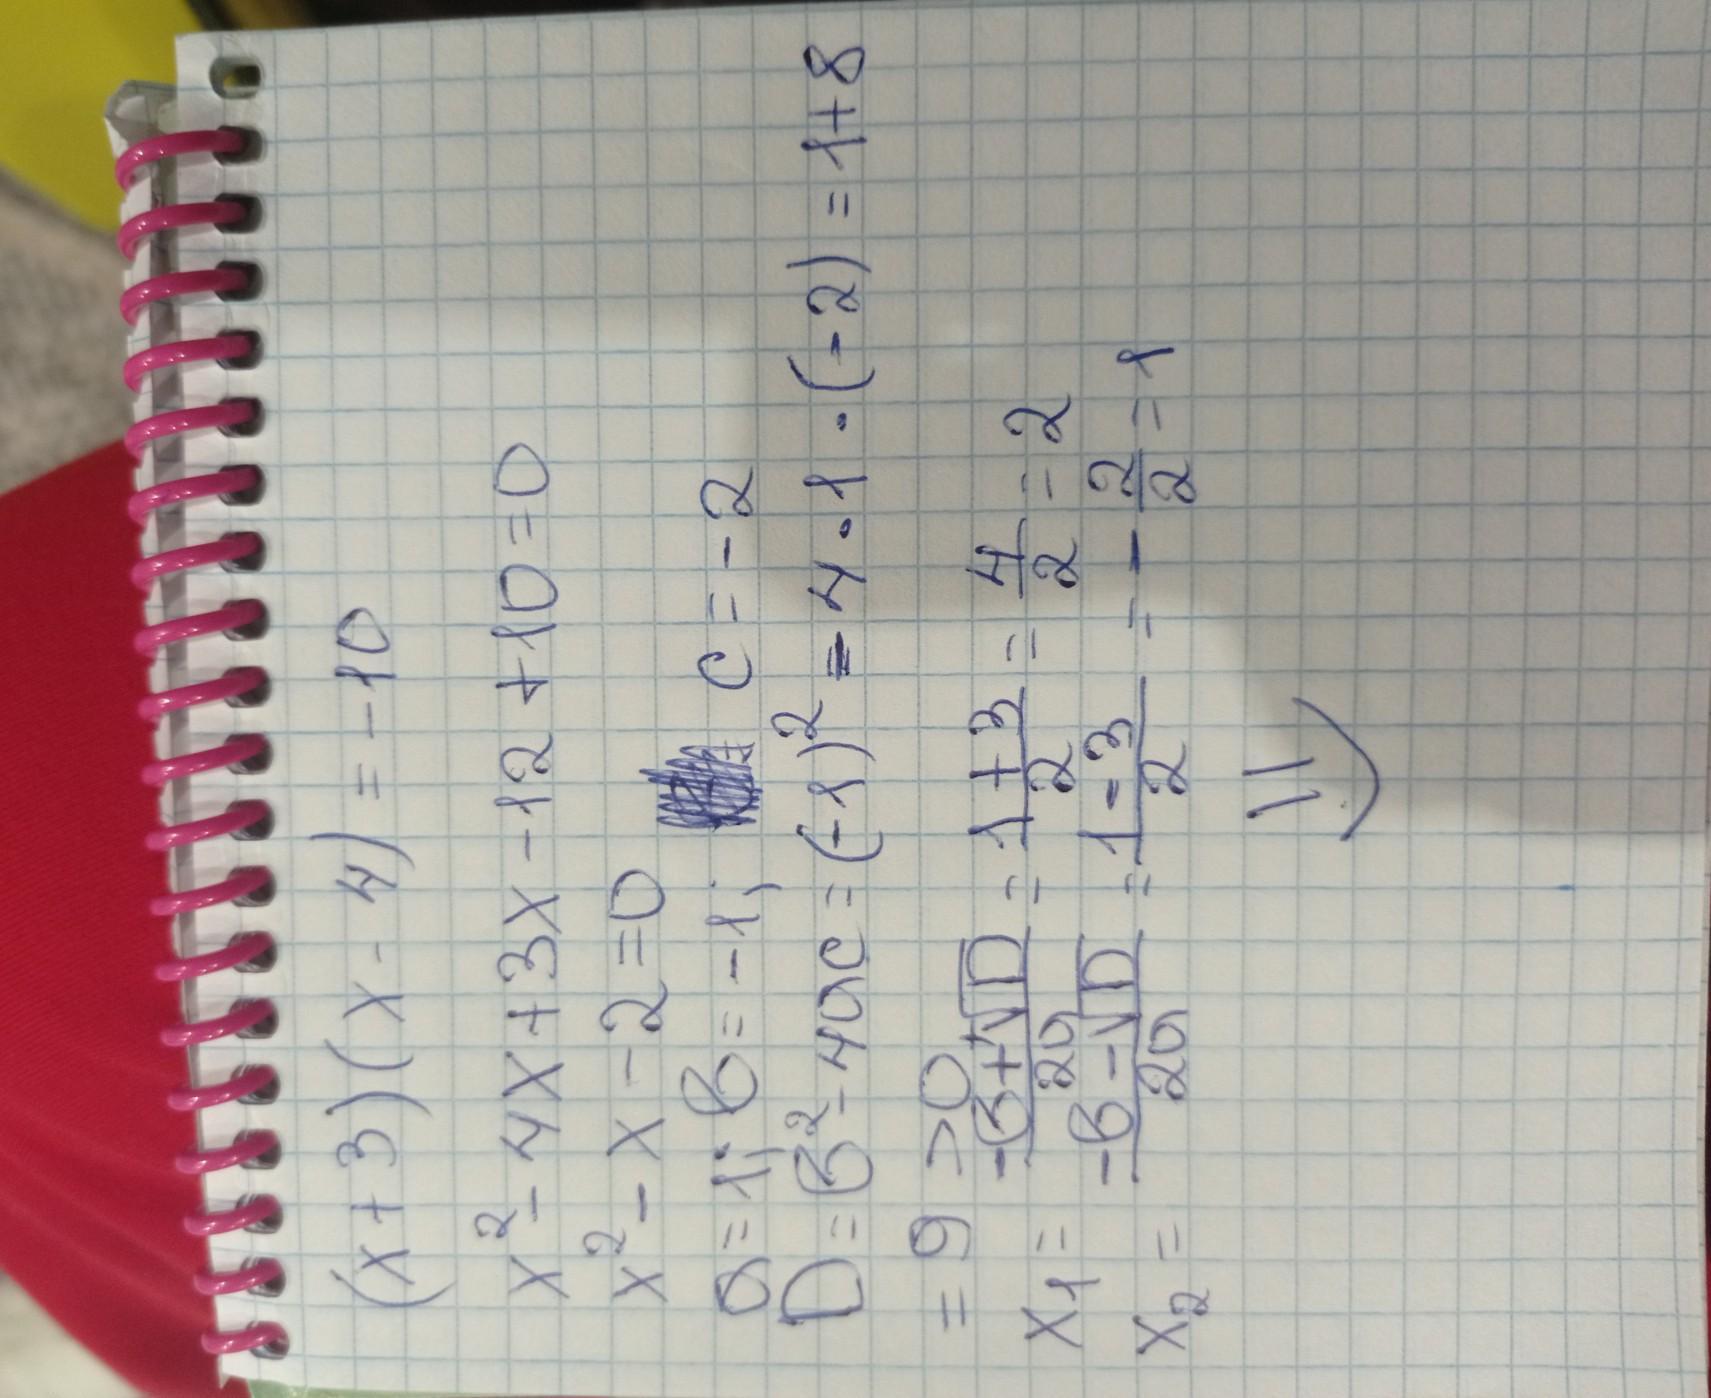 (x+3)(x-4) = -10
x²-4x+3x-12+10=0
x²-x-2=0
a=1; b=-1; c=-2
D=b²-4ac=(-1)²=4·1·(-2)=1+8
=9 >0
x₁= (-b+√D)/2a = (1+3)/2 = 4/2 = 2
x₂= (-b-√D)/2a = (1-3)/2 = -2/2 = 1
=)